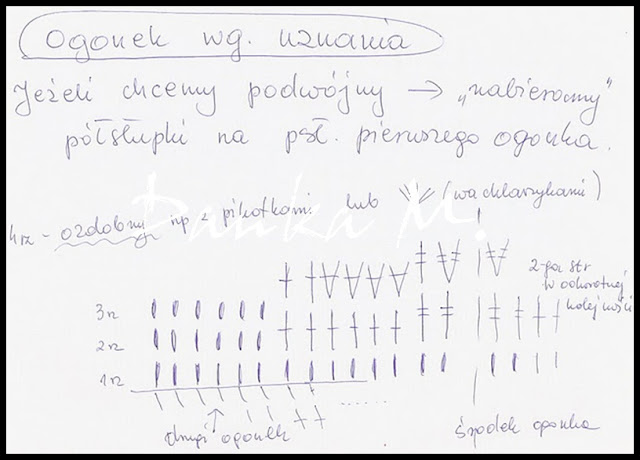 Ogonek wg. uznania
Jeżeli chcemy podwójny → „nabieramy"
półsłupki na psł. pierwszego ogonka.
4rz - ozdobny np z pikotkami lub (wachlarzykami)
Danka M.
2-ga str
w odwrotnej
kolejności
3rz
2rz
1rz
drugi ogonek
środek ogonka